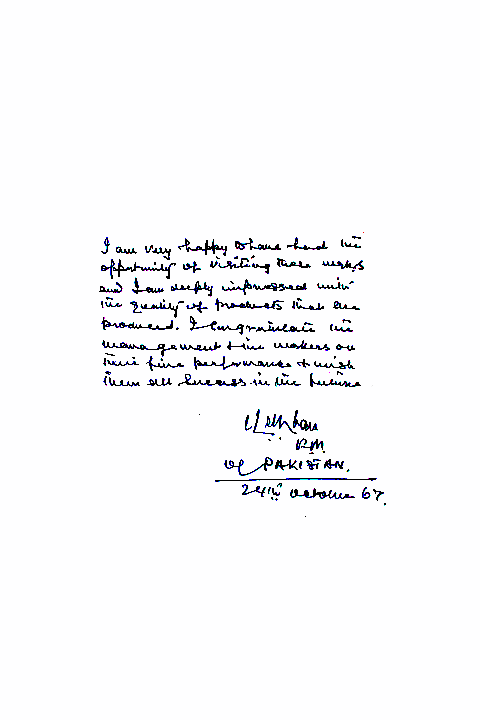 I am very happy to have had the
opportunity of visiting these works
and I am deeply impressed with
the quality of products that are
produced. I congratulate the
management & the workers on
their fine performance & wish
them all success in the future
P.M.
of PAKISTAN.
24th October 67.